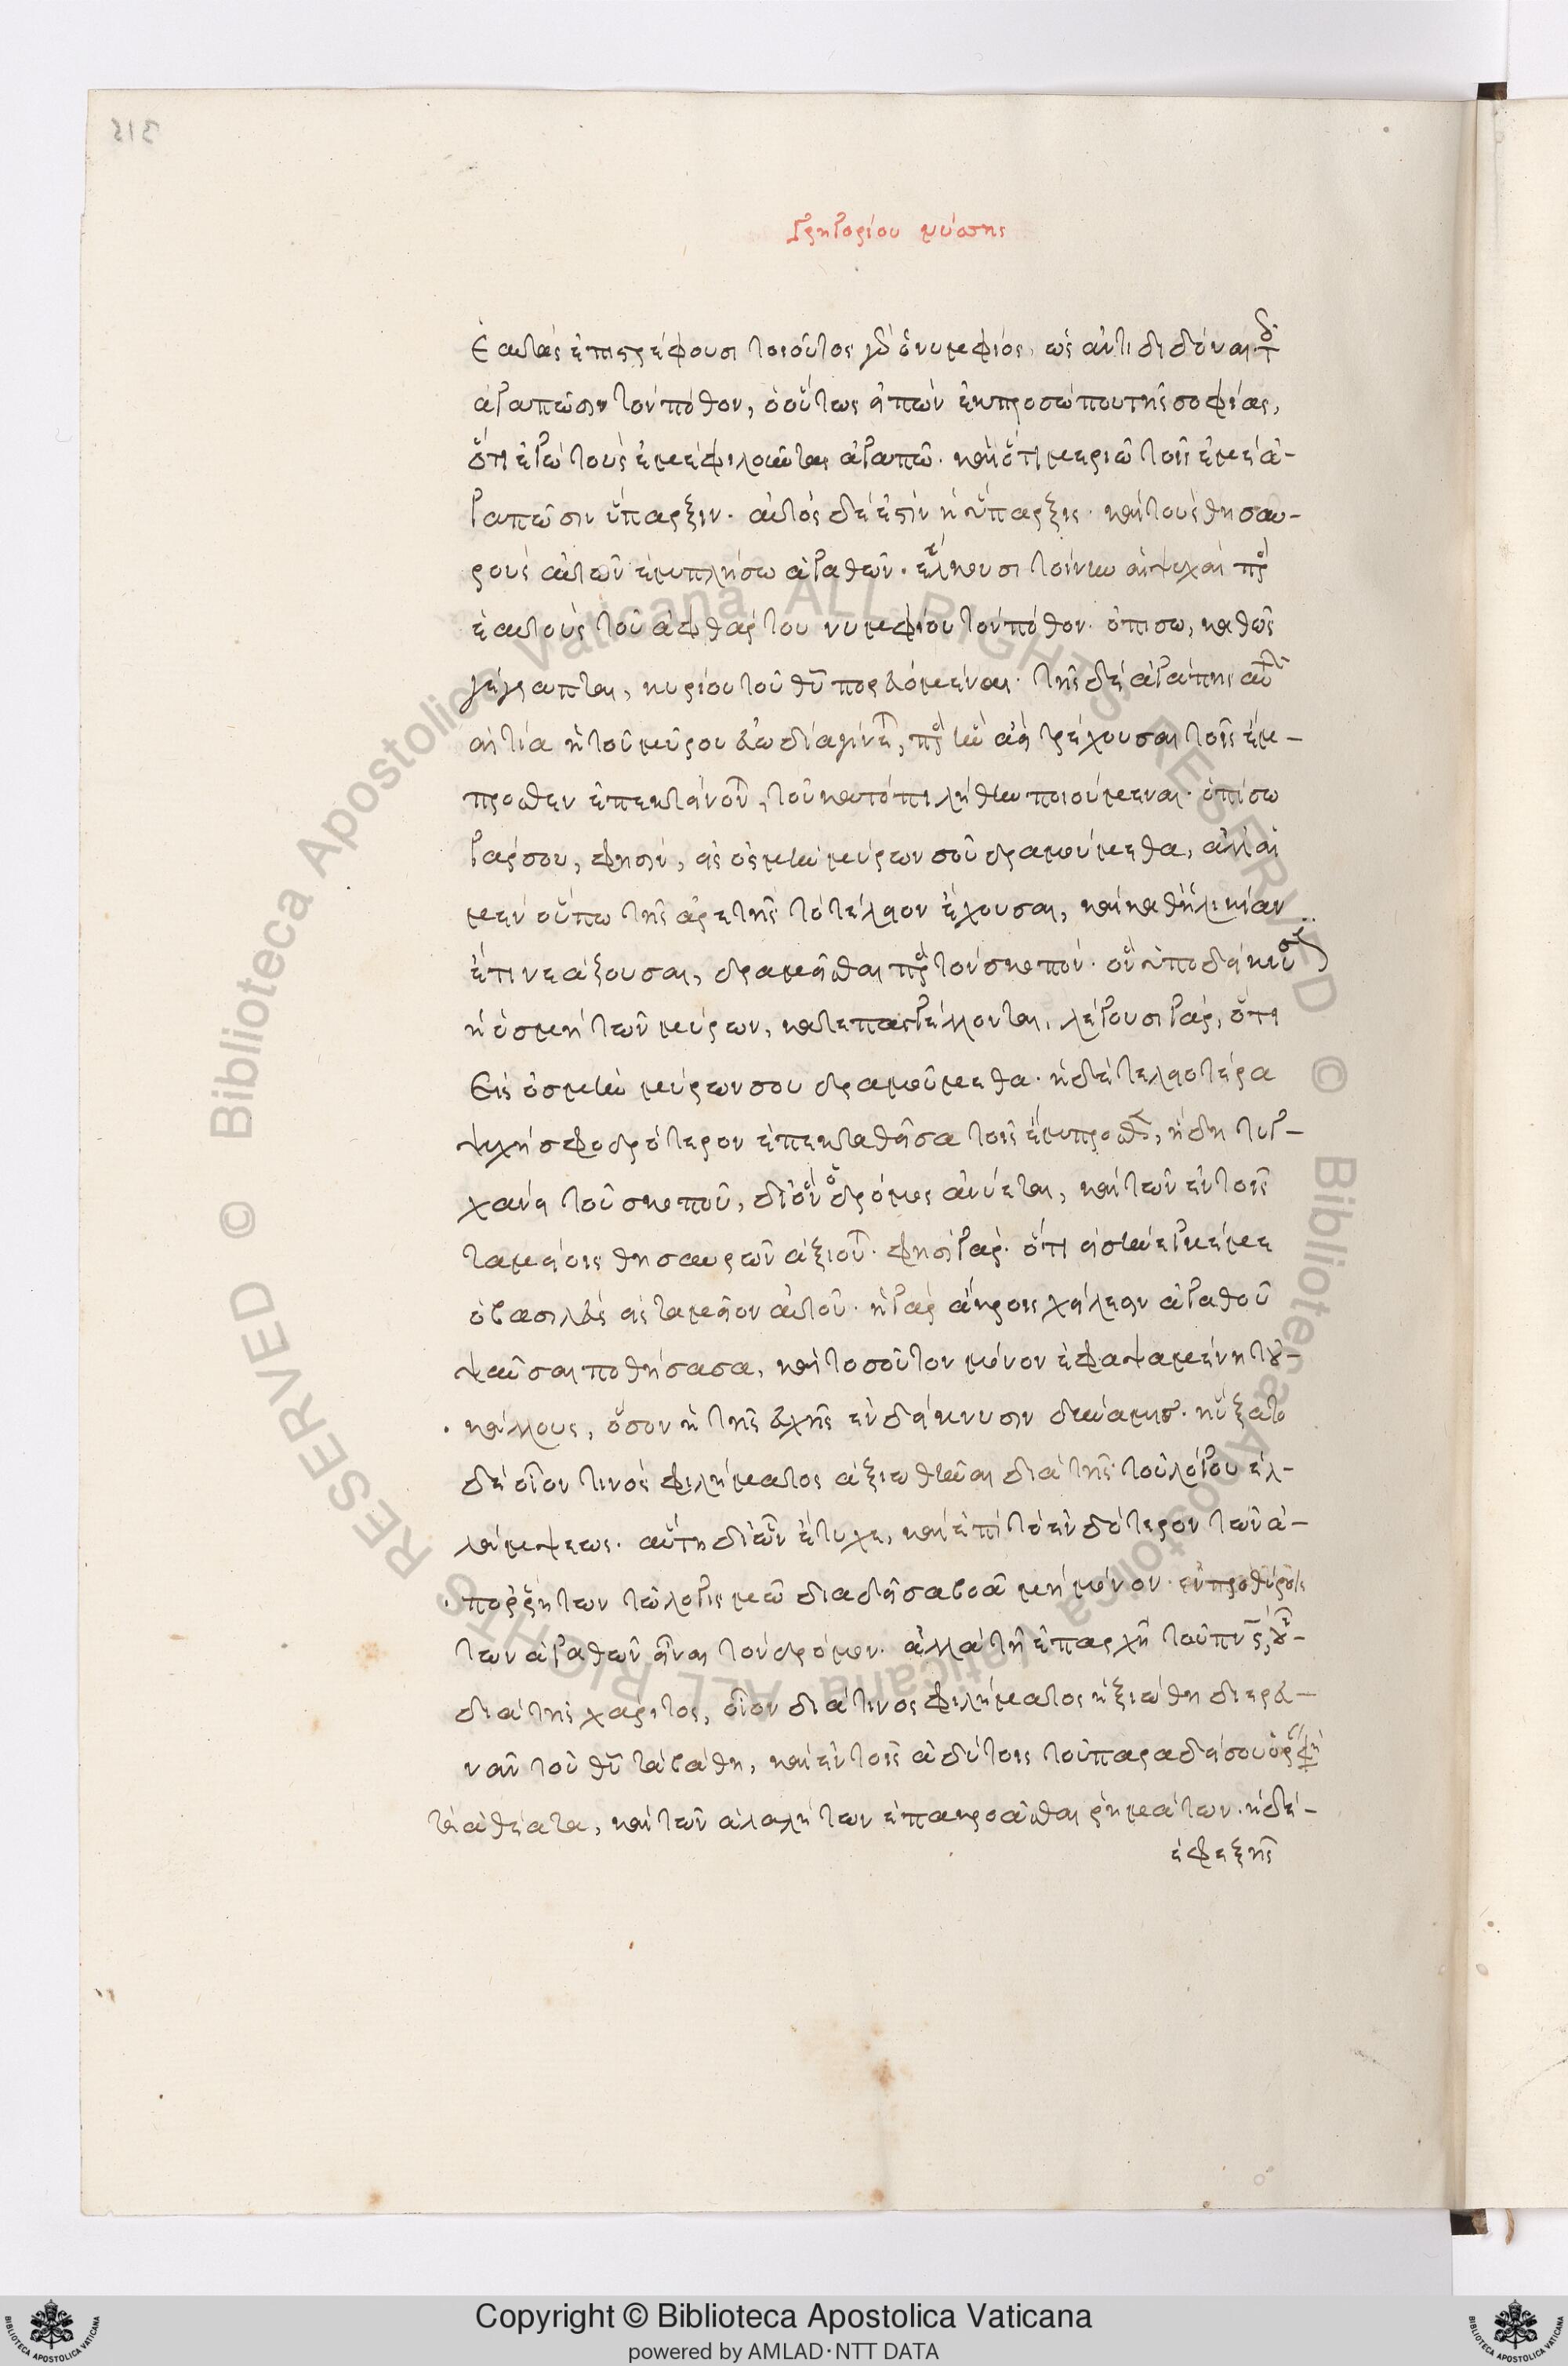 315
Γρηγορίου νύσης
ἑαυτὰς ἐπιστρέφουσι τοιοῦτος γὰρ ὁ νυμφίος, ὡς ἀντιδιδόναι τ
ἀγαπῶσιν τὸν πόθον, ὁ οὕτως εἰπὼν ἐκ προσώπου τῆς σοφίας,
ὅτι ἐγὼ τοὺς ἐμὲ φιλοῦντας ἀγαπῶ. καὶ ὅτι μεριῶ τοῖς ἐμὲ ἀ-
γαπῶσιν ὕπαρξιν. αὐτὸς δέ ἐστιν ἡ ὕπαρξις. καὶ τοὺς θησαυ-
ροὺς αὐτῶν ἐμπλήσω ἀγαθῶν. ἕλκουσι τοίνυν αἱ ψυχαὶ πρὸς
ἑαυτοὺς τοῦ ἀφθάρτου νυμφίου τὸν πόθον. ὀπίσω, καθὼς
γέγραπται, κυρίου τοῦ θῦ πορευόμεναι. τῆς δὲ ἀγάπης αὐτ
αἰτία ἡ τοῦ μύρου εὐωδία γίνετ, πρὸς ἣν ἀεὶ τρέχουσαι τοῖς ἔμ-
προσθεν ἐπεκτείνοντ, τοῦ κατόπι λήθην ποιούμεναι. ὀπίσω
γάρ σου, φησιν, εἰς ὀσμὴν μύρων σοῦ δραμούμεθα, ἀλλ' αἱ
μὲν οὔπω τῆς ἀρετῆς τὸ τέλειον ἔχουσαι, καὶ καθ' ἡλικίαν
ἔτι νεάζουσαι, δραμεῖσθαι πρὸς τὸν σκοπὸν. ὃν ὑποδείκνυσιν
ἡ ὀσμὴ τῶν μύρων, κατεπαγγέλλονται, λέγουσι γάρ, ὅτι
Εἰς ὀσμὴν μύρων σου δραμούμεθα. ἡ δὲ τελειοτέρα
ψυχὴ σφοδρότερον ἐπεκταθεῖσα τοῖς ἔμπροσθ, ἤδη τυγ-
χάνει τοῦ σκοποῦ, δι' ὃν ὁ δρόμος ἀνύεται, καὶ τῶν ἐν τοῖς
ταμείοις θησαυρῶν ἀξιοῦτ. φησὶ γάρ. ὅτι εἰσήνεγκέ με
ὁ βασιλεὺς εἰς ταμεῖον αὐτοῦ. ἡ γὰρ ἄκροις χείλεσιν ἀγαθοῦ
ψαῦσαι ποθήσασα, καὶ τοσοῦτον μόνον ἐφαψαμένη τοῦ-
κάλλους, ὅσον ἡ τῆς εὐχῆς ἐνδείκνυσιν δύναμις. ηὔξατο
δὲ οἷόν τινος φιλήματος ἀξιωθῆναι διὰ τῆς τοῦ λόγου ἐλ-
λάμψεως. αὕτη δι' ὧν ἔτυχε, καὶ ἐπὶ τὸ ἐνδότερον τῶν ἀ-
πορρήτων τῷ λογισμῷ διαδῦσα βοᾷ μὴ μόνον ἐν προθύροις
τῶν ἀγαθῶν εἶναι τὸν δρόμον. ἀλλὰ τῇ ἐπαρχῇ τοῦ πνς,
διὰ τῆς χάριτος, οἷον διά τινος φιλήματος ἠξιώθη διερευ-
νᾶν τοῦ θῦ τὰ βάθη, καὶ ἐν τοῖς ἀδύτοις τοῦ παραδείσου ὁρ φη
τὰ ἀθέατα, καὶ τῶν ἀλαλήτων ἐπακροᾶσθαι ῥημάτων. ἡ δὲ-
ἐφεξῆς
Copyright © Biblioteca Apostolica Vaticana
powered by AMLAD·NTT DATA